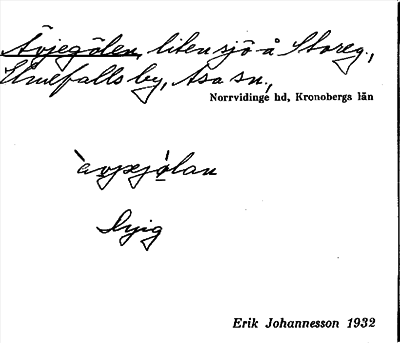 Åvjegölen, liten sjö å Storeg.,
Elmefalls by, Asa sn.,
Norrvidinge hd, Kronobergs län
Dyig
Erik Johannesson 1932